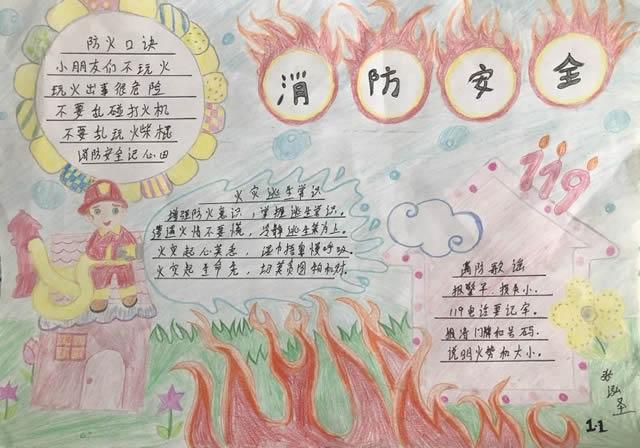 消防安全
防火口诀
小朋友们不玩火
玩火出事很危险
不要乱碰打火机
不要乱玩火柴棍
消防安全记心田
119
火灾逃生常识
增强防火意识，掌握逃生常识。
遭遇火情不要慌，冷静逃生莫为上。
火灾起心莫急，湿巾捂鼻慢呼吸。
火灾起
消防歌谣
报警早，损失小，
119电话要记牢。
说明火势和大小。
1.1